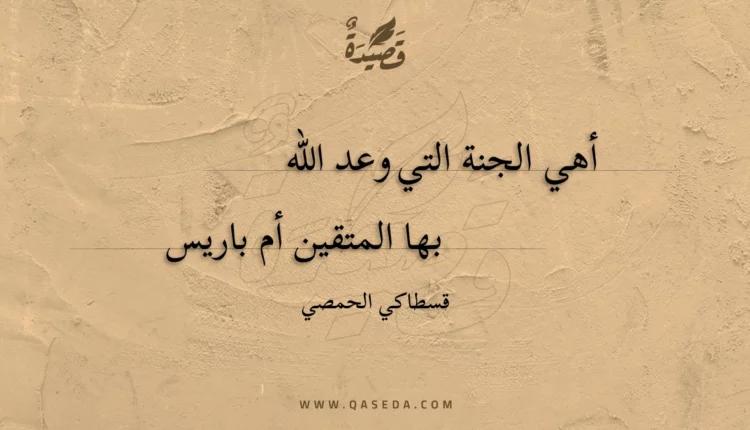 قَصِيْدَةٌ
أهي الجنة التي وعد الله
بها المتقين أم باريس
قسطاكي الحمصي
WWW.QASEDA.COM